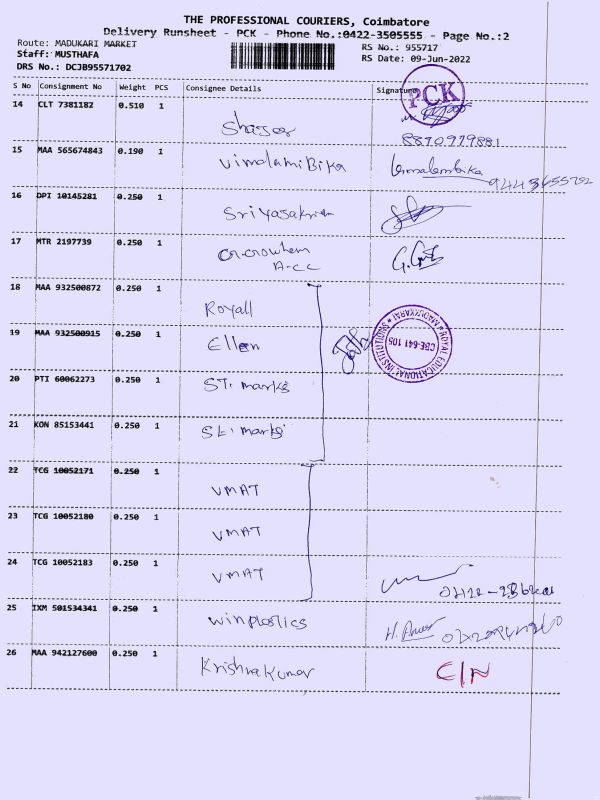 THE PROFESSIONAL COURIERS, Coimbatore
Delivery Runsheet - PCK - Phone No.:0422-3505555 - Page No.:2
Route: MADUKARI MARKET
Staff: MUSTHAFA
DRS No.: DCJB95571702
RS No.: 955717
RS Date: 09-Jun-2022
S No Consignment No Weight PCS Consignee Details Signature
PCK
14 CLT 7381182 0.510 1
8870979881
15 MAA 565674843 0.190 1 Vimalambika
16 DPI 10145281 0.250 1
17 MTR 2197739 0.250 1
A-CC
18 MAA 932500872 0.250 1 Royall
19 MAA 932500915 0.250 1 Ellen
ROYAL EDUCATIONAL INSTITUTIONS
MADUKKARAI
CBE-641 105
20 PTI 60062273 0.250 1 ST. marks
21 KON 85153441 0.250 1 St. marks
22 TCG 10052171 0.250 1 VMAT
23 TCG 10052180 0.250 1 VMAT
24 TCG 10052183 0.250 1 VMAT
25 IXM 501534341 0.250 1 winplastics
26 MAA 942127600 0.250 1 Krishnakumar C/N